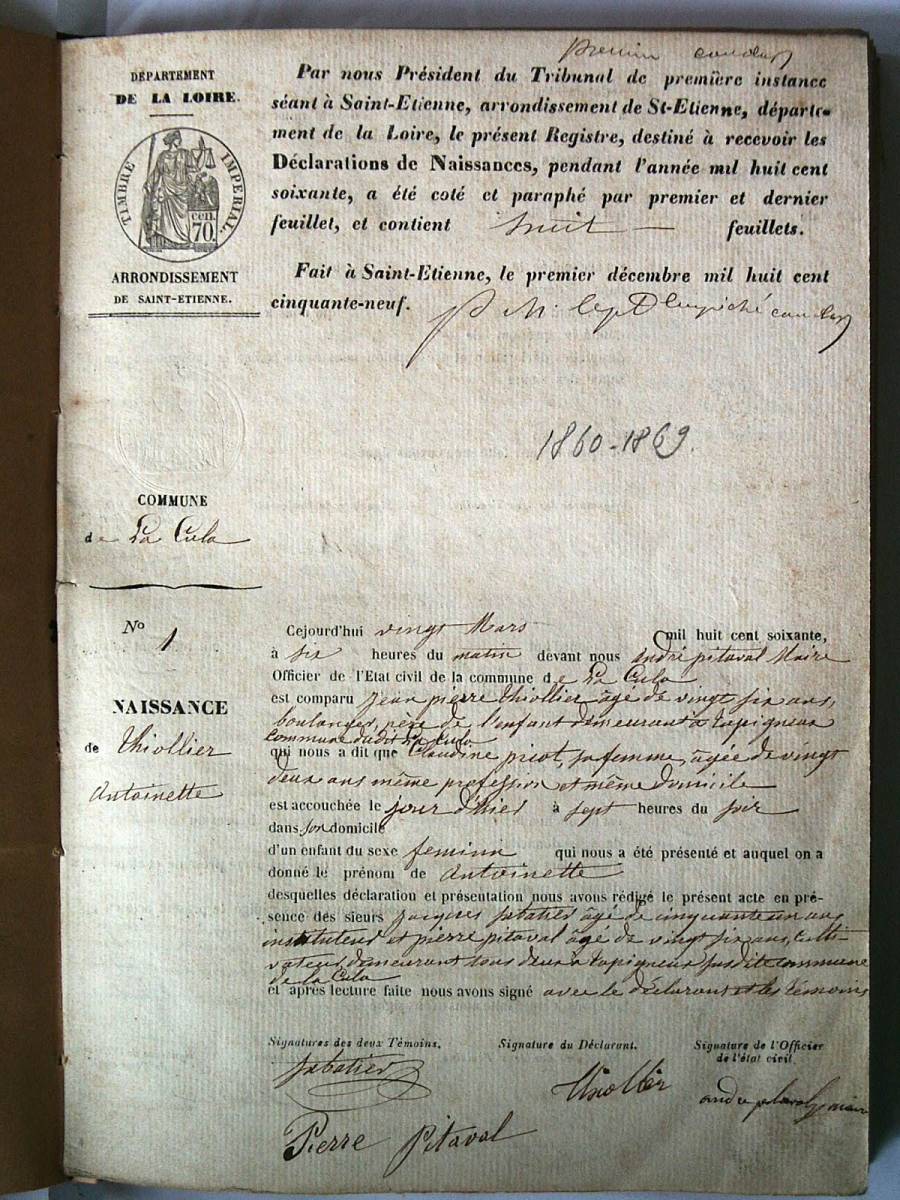 premier
DÉPARTEMENT
DE LA LOIRE.
TIMBRE IMPERIAL.
cen.
70.
ARRONDISSEMENT
DE SAINT-ETIENNE.
Par nous Président du Tribunal de première instance
séant à Saint-Etienne, arrondissement de St-Etienne, départe-
ment de la Loire, le présent Registre, destiné à recevoir les
Déclarations de Naissances, pendant l'année mil huit cent
soixante, a été coté et paraphé par premier et dernier
feuillet, et contient huit feuillets.
Fait à Saint-Etienne, le premier décembre mil huit cent
cinquante-neuf.
1860-1869.
COMMUNE
de La Cula
No 1
NAISSANCE
de Thiollier
Antoinette
Cejourd'hui vingt Mars mil huit cent soixante,
à six heures du matin devant nous andré pitaval Maire
Officier de l'Etat civil de la commune de La Cula
est comparu jean pierre thiollier âgé de vingt six ans,
boulanger, père de l'enfant demeurant à tapigneux
commune dudit La Cula
qui nous a dit que Claudine picot, sa femme, agée de vingt
deux ans même profession et même domicile
est accouchée le jour d'hier à sept heures du soir
dans son domicile
d'un enfant du sexe feminin qui nous a été présenté et auquel on a
donné le prénom de Antoinette
desquelles déclaration et présentation nous avons rédigé le présent acte en pré-
sence des sieurs jacques sabatier âgé de cinquante un ans
instituteur et pierre pitaval âgé de vingt six ans, culti-
vateur, demeurant tous deux à tapigneux susdite commune
de la Cula
et après lecture faite nous avons signé avec le déclarant et les témoins
Signatures des deux Témoins. Signature du Déclarant. Signature de l'Officier
de l'état civil.
sabatier
thiollier
andré pitaval maire
Pierre Pitaval